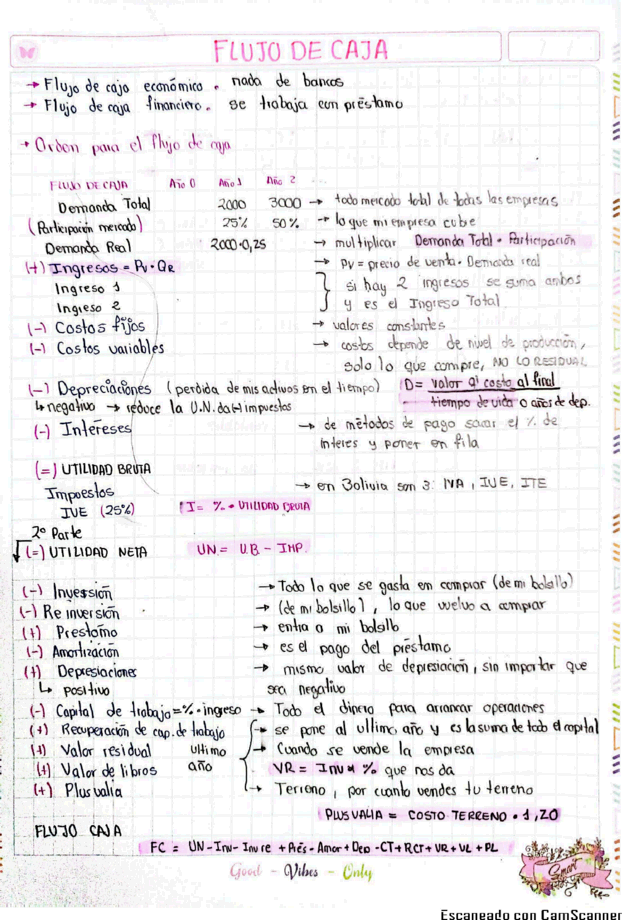 FLUJO DE CAJA
→ Flujo de caja económico. nada de bancos
→ Flujo de caja financiero. se trabaja con préstamo
→ Orden para el flujo de caja
FLUJO DE CAJA Año 0 Año 1 Año 2 ...
Demanda Total 2000 3000 → todo mercado total de todas las empresas
(Participación mercado) 25% 50% → lo que mi empresa cubre
Demanda Real 2000·0,25 → multiplicar Demanda Total · Participación
(+) Ingresos = Pv · QR → Pv = precio de venta · Demanda real
Ingreso 1 si hay 2 ingresos se suma ambos
Ingreso 2 y es el Ingreso Total
(-) Costos fijos → valores constantes
(-) Costos variables → costos depende de nivel de producción,
solo lo que compre, NO LO RESIDUAL
(-) Depreciaciones (perdida de mis activos en el tiempo) D= valor al costo al final
↳ negativo → reduce la U.N. da(+) impuestos tiempo de vida o años de dep.
(-) Intereses → de métodos de pago sacar el % de
interes y poner en fila
(=) UTILIDAD BRUTA
Impuestos → en Bolivia son 3: IVA, IUE, ITE
IUE (25%) I= % · UTILIDAD BRUTA
2º Parte
(=) UTILIDAD NETA UN = U.B - IMP.
(-) Inversión → Todo lo que se gasta en comprar (de mi bolsillo)
(-) Re inversión → (de mi bolsillo), lo que vuelvo a comprar
(+) Prestamo → entra a mi bolsillo
(-) Amortización → es el pago del préstamo
(+) Depresiaciones → mismo valor de depresiación, sin importar que
↳ positivo sea negativo
(-) Capital de trabajo = % · ingreso → Todo el dinero para arrancar operaciones
(+) Recuperación de cap. de trabajo → se pone al ultimo año y es la suma de todo el capital
(+) Valor residual ultimo → Cuando se vende la empresa
(+) Valor de libros año VR = INV * % que nos da
(+) Plusvalia → Terreno, por cuanto vendes tu terreno
PLUSVALIA = COSTO TERRENO · 1,20
FLUJO CAJA
FC = UN - Inv - Inv re + Prés - Amor + Dep - CT + RCT + VR + VL + PL
Good - Vibes - Only
Smart
Escaneado con CamScanner